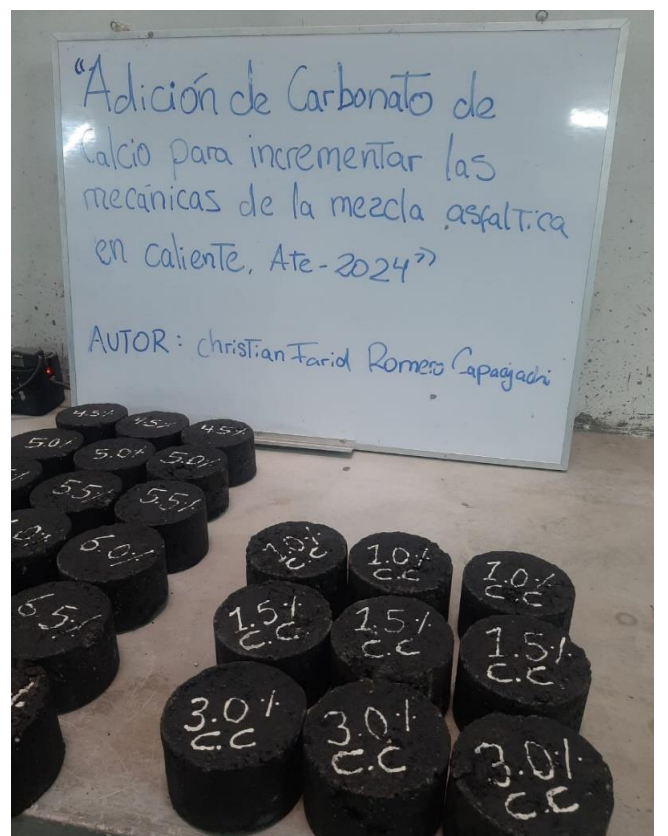 "Adición de Carbonato de
Calcio para incrementar las
mecánicas de la mezcla asfaltica
en caliente, Ate-2024"
AUTOR: christian Farid Romero
4.5% 4.5% 4.5%
5.0% 5.0% 5.0%
5.5% 5.5%
6.0%
6.5%
1.0% 1.0% 1.0%
C.C C.C C.C
1.5% 1.5% 1.5%
C.C C.C C.C
3.0% 3.0% 3.0%
C.C C.C C.C